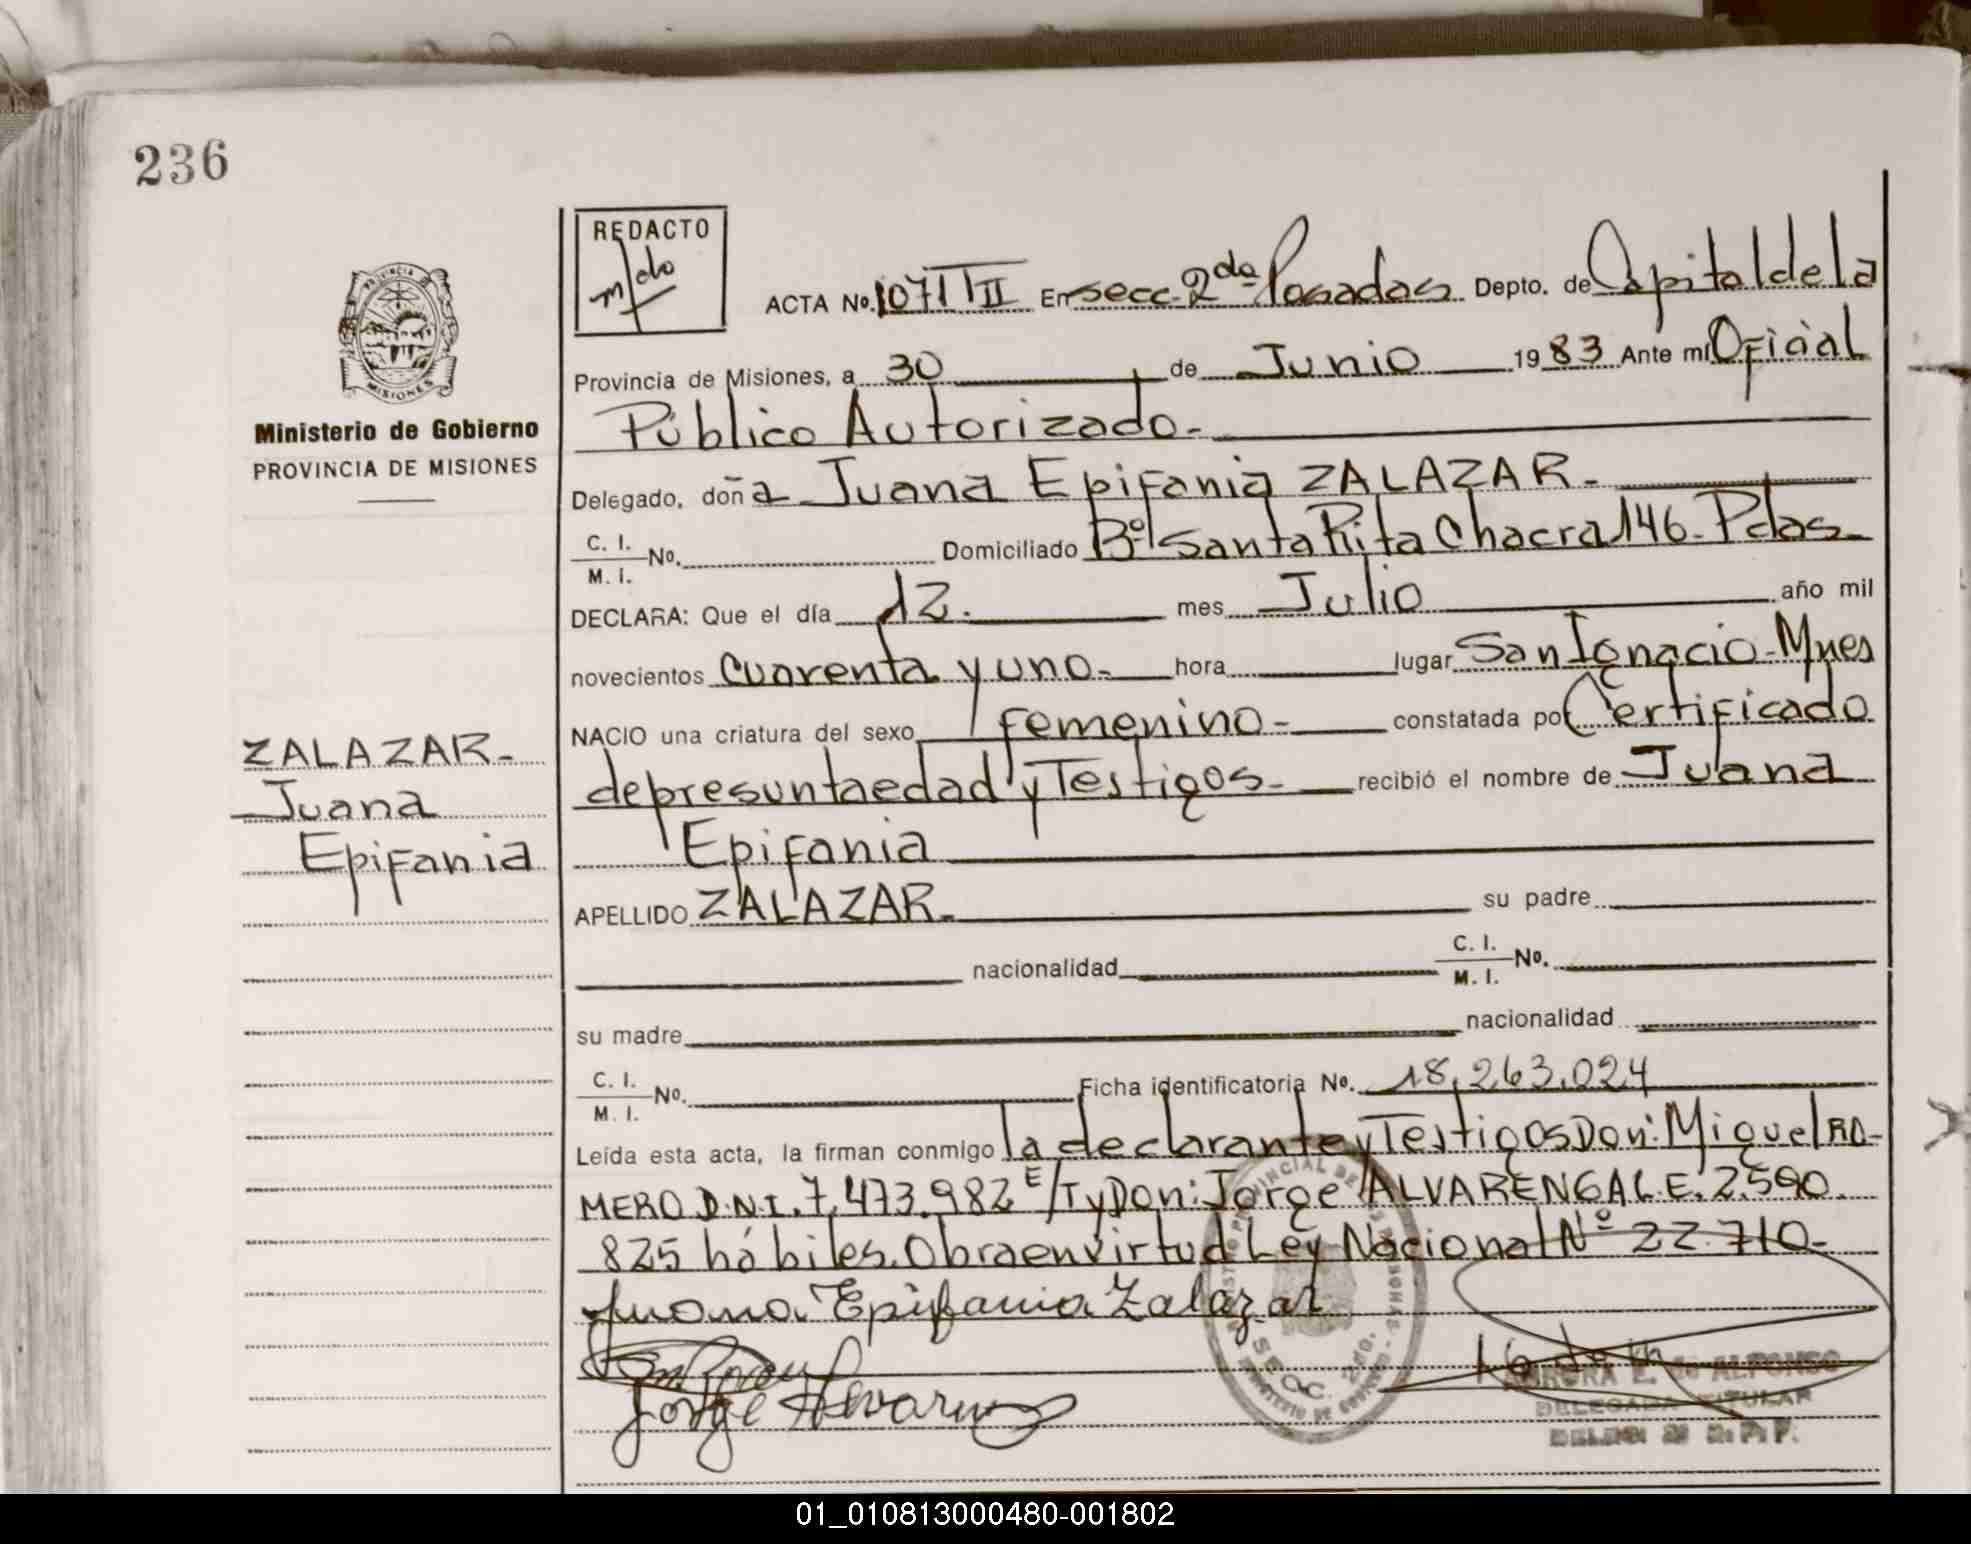 236
REDACTO
ACTA No. 1071 T II En secc. 2da Posadas Depto. de Capital de la
Provincia de Misiones, a 30 de Junio 1983 Ante mí Oficial
Público Autorizado.-
Ministerio de Gobierno
PROVINCIA DE MISIONES
Delegado, doña Juana Epifania ZALAZAR.-
C. I. / M. I. No. Domiciliado Bº Santa Rita Chacra 146 - Pdas.-
DECLARA: Que el día 12.- mes Julio año mil
novecientos cuarenta y uno.- hora lugar San Ignacio - Mnes
NACIO una criatura del sexo femenino.- constatada por Certificado
de presunta edad y Testigos.- recibió el nombre de Juana
Epifania
APELLIDO ZALAZAR.- su padre
nacionalidad C. I. / M. I. No.
su madre nacionalidad
C. I. / M. I. No. Ficha identificatoria No. 18.263.024
Leída esta acta, la firman conmigo la declarante y Testigos Don: Miguel RO-
MERO D.N.I. 7.473.982 E/T y Don: Jorge ALVARENGA L.E. 2.590.
825 hábiles. Obra en virtud Ley Nacional Nº 22.710.-
Juana Epifania Zalazar
Jorge Alvarenga
ZALAZAR.-
Juana
Epifania
PROVINCIA
MISIONES
SECC. 2da.
AURORA E. de ALFONSO
DELEGADA TITULAR
01_010813000480-001802